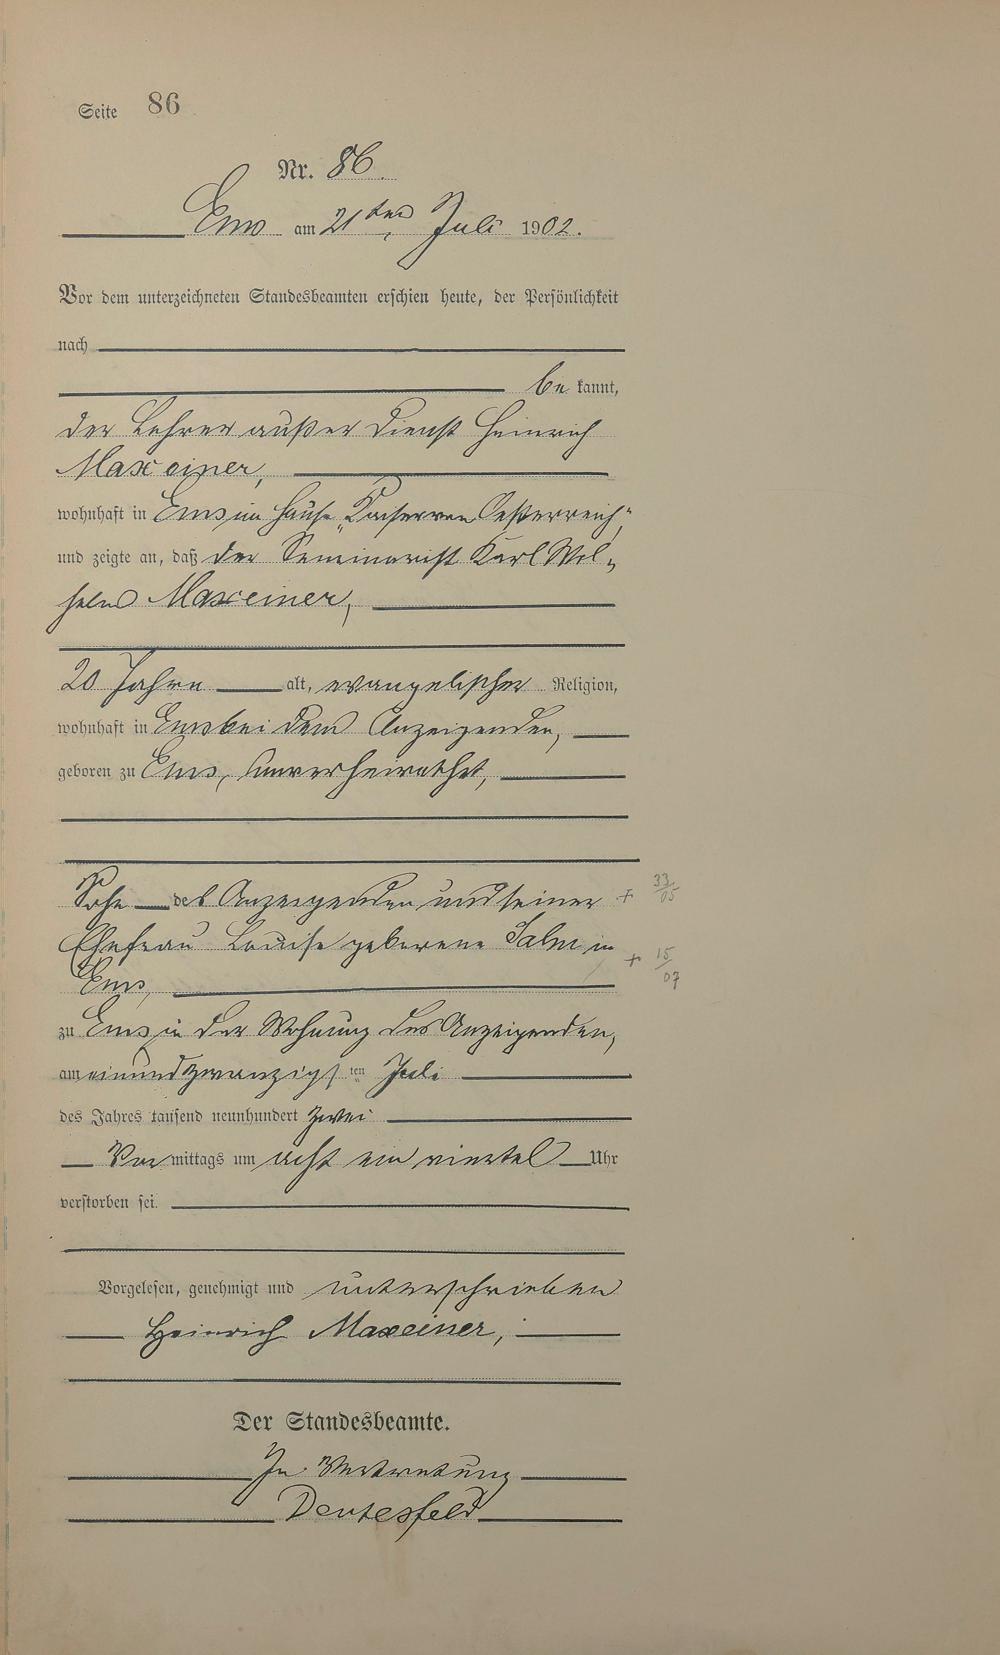 Seite 86
Nr. 86.
Ems am 21ten Juli 1902.
Vor dem unterzeichneten Standesbeamten erschien heute, der Persönlichkeit
nach
be kannt,
der Lehrer außer Dienst Heinrich
Maxeiner,
wohnhaft in Ems im Hause „Kaiser von Oesterreich“,
und zeigte an, daß der Seminarist Karl Wil-
helm Maxeiner,
20 Jahre alt, evangelischer Religion,
wohnhaft in Ems bei dem Anzeigenden,
geboren zu Ems, unverheirathet,
Sohn des Anzeigenden und seiner + 33/05
Ehefrau Louise geborene Salm in + 15/07
Ems,
zu Ems in der Wohnung des Anzeigenden,
am einundzwanzigs ten Juli
des Jahres tausend neunhundert zwei
Vor mittags um acht ein viertel Uhr
verstorben sei.
Vorgelesen, genehmigt und unterschrieben
Heinrich Maxeiner,
Der Standesbeamte.
In Vertretung
Deutesfeld